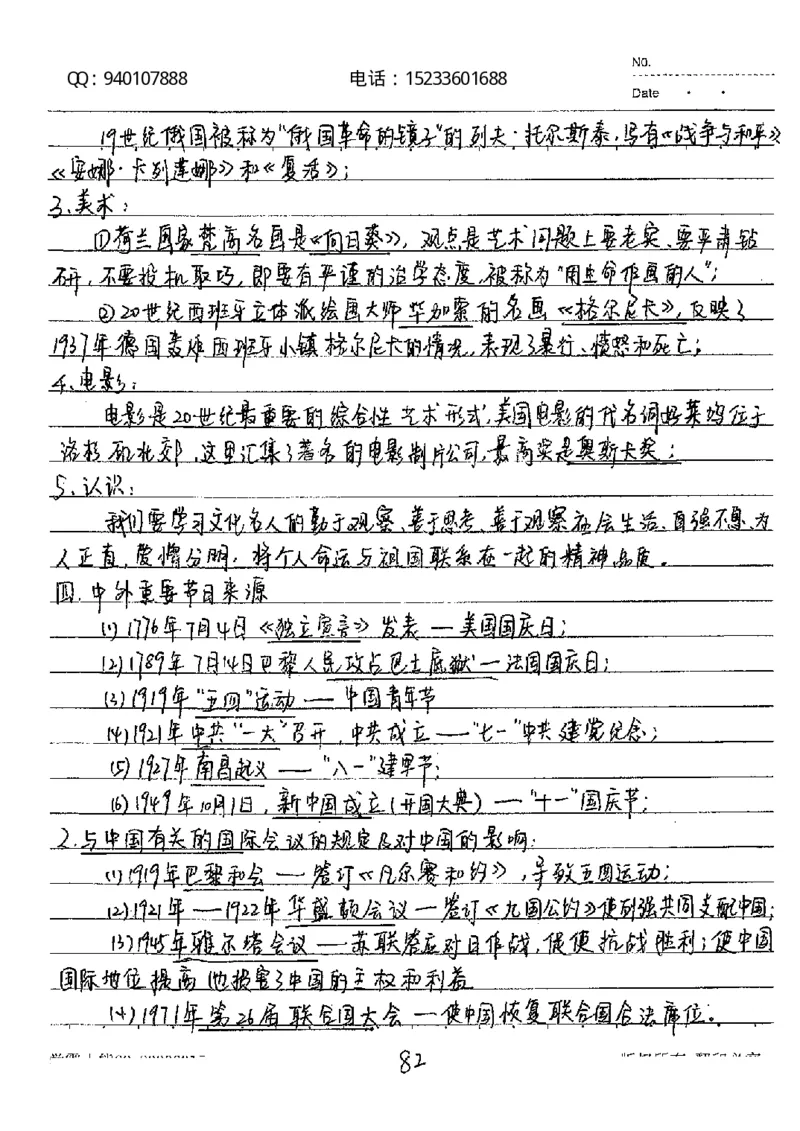 No.
QQ：940107888 电话：15233601688
Date
19世纪俄国被称为“俄国革命的镜子”的列夫·托尔斯泰，写有《战争与和平》
《安娜·卡列莲娜》和《复活》；
3、美术：
①荷兰画家梵高名画是《向日葵》，观点是艺术问题上要老实、要严肃钻
研，不要投机取巧，即要有严谨的治学态度，被称为“用生命作画的人”；
②20世纪西班牙立体派绘画大师毕加索的名画《格尔尼卡》，反映了
1937年德国轰炸西班牙小镇格尔尼卡的情况，表现了暴行、愤怒和死亡；
4、电影：
电影是20世纪最重要的综合性艺术形式，美国电影的代名词好莱坞位于
洛杉矶北郊，这里汇集了著名的电影制片公司，最高奖是奥斯卡奖；
5、认识：
我们要学习文化名人的勤于观察、善于思考、善于观察社会生活、自强不息、为
人正直，爱憎分明，将个人命运与祖国联系在一起的精神品质。
四、中外重要节日来源
(1)1776年7月4日《独立宣言》发表—美国国庆日；
(2)1789年7月14日巴黎人民攻占巴士底狱—法国国庆日；
(3)1919年“五四”运动——中国青年节
(4)1921年中共“一大”召开，中共成立——“七一”中共建党纪念；
(5)1927年南昌起义——“八一”建军节；
(6)1949年10月1日，新中国成立(开国大典)—“十一”国庆节；
2、与中国有关的国际会议的规定及对中国的影响：
(1)1919年巴黎和会—签订《凡尔赛和约》，导致五四运动；
(2)1921年—1922年华盛顿会议—签订《九国公约》使列强共同支配中国；
(3)1945年雅尔塔会议—苏联答应对日作战，促使抗战胜利；使中国
国际地位提高 也损害了中国的主权和利益
(4)1971年第26届联合国大会—使中国恢复联合国合法席位。
82